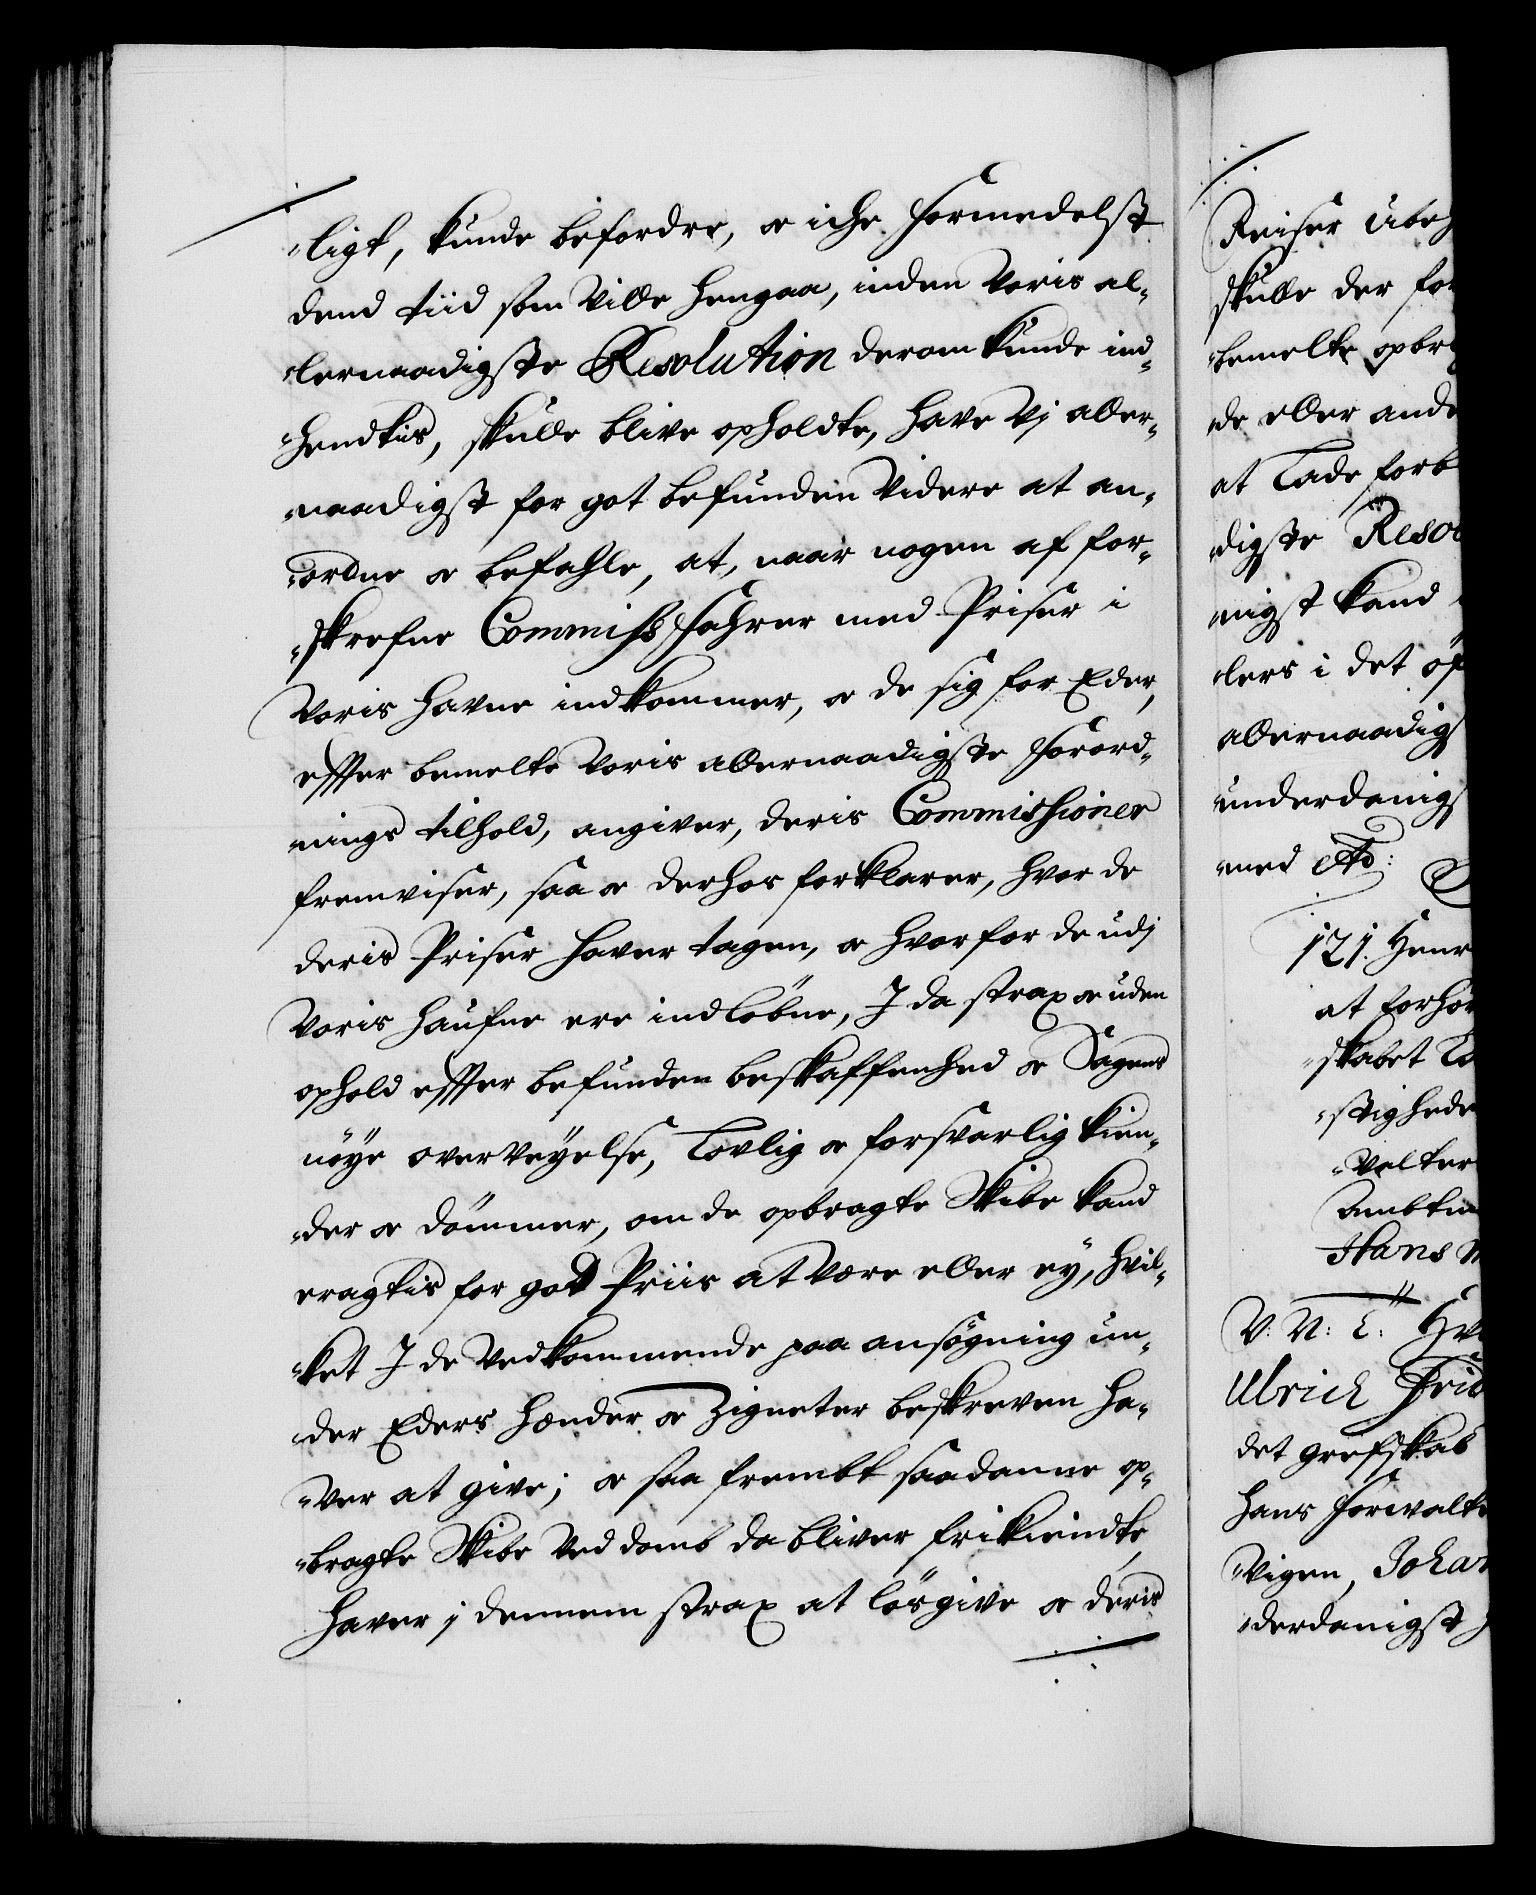 ligt, kunde befordre, oc iche formedelst
dend tiid som Ville hengaa, inden Voris al-
lernaadigste Resolution derom kunde ind-
hendtis, skulle blive opholdte, have Vj aller-
naadigst for got befunden Videre at an-
ordne oc befahle, at, naar nogen af for-
skrefne Commiss fahrer med Priser i
Voris Havne indkommer, oc de sig for Eder,
effter bemelte Voris allernaadigste Forord-
nings tilhold, angiver, deris Commissioner
fremviser, saa oc derhos forklarer, hvor de
deris Priser haver tagen, oc hvorfor de udj
Voris Haufne ere indløbne, J da strax oc uden
ophold effter befunden beskaffenhed oc Sagens
nöye overveyelse, Lovlig oc forsvarlig kien-
der oc dömmer, om de opbragte Skibe kand
eragtis for god Priis at Være eller ey, hvil-
ket J de Vedkommende paa ansögning un-
der Eders Hænder oc Zigneter beskreven ha-
ver at give; oc saa frembt saadanne op-
bragte Skibe Ved domb da bliver frikiendte,
haver j dennem strax at lösgive oc deris
Reiser
skulle der
bemelte
de eller
at Lade
digste
nigst kand
lers i det
allernaadigst
underdanigst
med
121. Henr
at forhör
skabet
stighede
Valter
Ambtm
Hans
V. N: L: Hv
Ulrich Frid
det grefskab
hans forvalte
Vigen, Johan
derdanigst